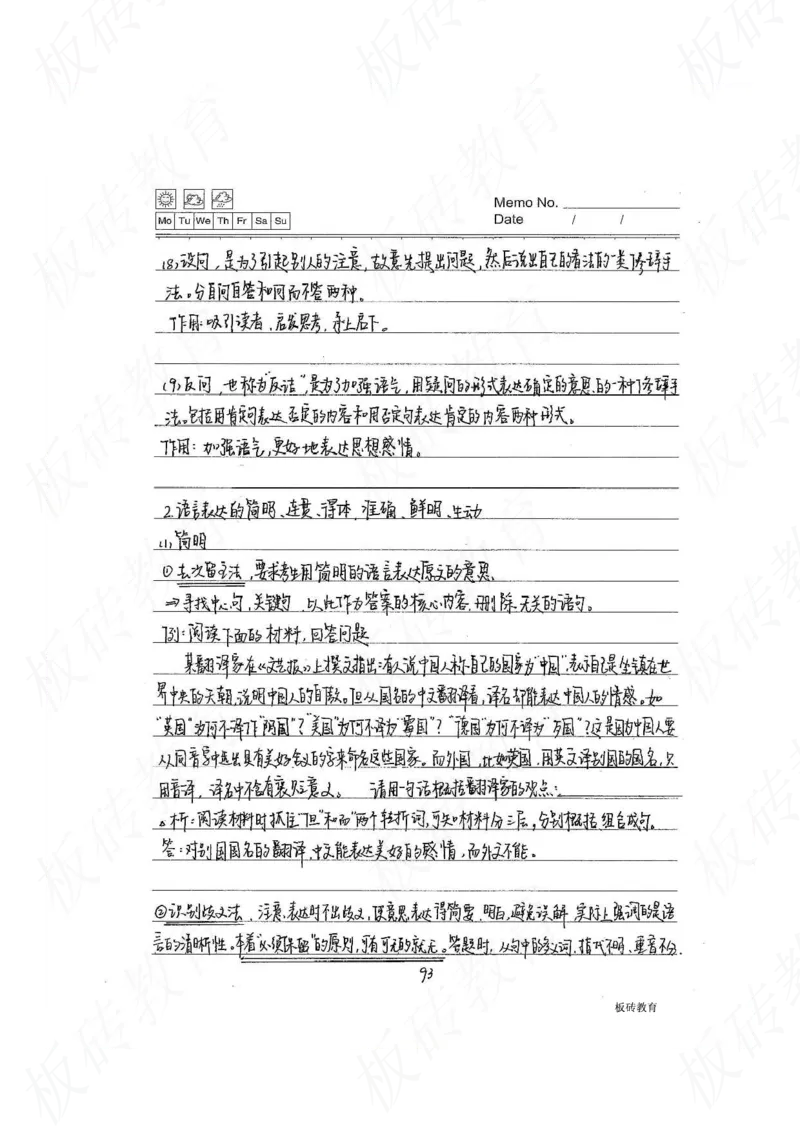 Memo No.
Mo Tu We Th Fr Sa Su
Date / /
(8)设问,是为了引起别人的注意,故意先提出问题,然后说出自己的看法的一类修辞手
法。分自问自答和问而不答两种。
作用:吸引读者,启发思考,承上启下。
(9)反问,也称为"反诘",是为了加强语气,用疑问的形式表达确定的意思的一种修辞手
法。包括用肯定句表达否定的内容和用否定句表达肯定的内容两种形式。
作用:加强语气,更好地表达思想感情。
2.语言表达的简明、连贯、得体、准确、鲜明、生动
(1)简明
①去次留主法,要求考生用简明的语言表达原文的意思
⇒寻找中心句,关键句,以此作为答案的核心内容,删除无关的语句。
例:阅读下面的材料,回答问题
某翻译家在《文艺报》上撰文指出:有人说中国人称自己的国家为"中国",表示自己是坐镇在世
界中央的天朝,说明中国人的自傲。但从国名的中文翻译看,译名却能表达中国人的情感。如
"英国"为何不译作"阴国"?"美国"为何不译为"霉国"?"德国"为何不译为"歹国"?这是因为中国人要
从同音字中选出具有美好含义的字来命名这些国家。而外国,比如英国,用英文译别国的国名,只
用音译,译名中不含有褒贬意义。 请用一句话概括翻译家的观点:
析:阅读材料时抓住"但"和"而"两个转折词,可知材料分三层,分别概括组合成句。
答:对别国国名的翻译,中文能表达美好的感情,而外文不能。
②识别歧义法,注意表达时不出歧义,使意思表达得简要,明白,避免误解,实际上强调的是语
言的清晰性。本着"必须保留"的原则,可有可无的就无。答题时,从句中的多义词、指代不明、重音不分、
93
板砖教育
板砖教育